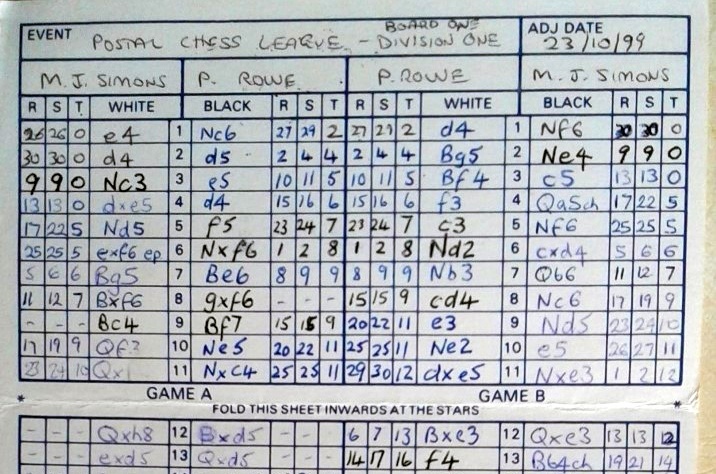 EVENT POSTAL CHESS LEAGUE - BOARD ONE DIVISION ONE ADJ DATE 23/10/99
M. J. SIMONS P. ROWE P. ROWE M. J. SIMONS
R S T WHITE BLACK R S T R S T WHITE BLACK R S T
26 26 0 e4 1 Nc6 27 29 2 27 29 2 d4 1 Nf6 30 30 0
30 30 0 d4 2 d5 2 4 4 2 4 4 Bg5 2 Ne4 9 9 0
9 9 0 Nc3 3 e5 10 11 5 10 11 5 Bf4 3 c5 13 13 0
13 13 0 dxe5 4 d4 15 16 6 15 16 6 f3 4 Qa5ch 17 22 5
17 22 5 Nd5 5 f5 23 24 7 23 24 7 c3 5 Nf6 25 25 5
25 25 5 exf6 ep 6 Nxf6 1 2 8 1 2 8 Nd2 6 cxd4 5 6 6
5 6 6 Bg5 7 Be6 8 9 9 8 9 9 Nb3 7 Qb6 11 12 7
11 12 7 Bxf6 8 gxf6 - - - 15 15 9 cd4 8 Nc6 17 19 9
- - - Bc4 9 Bf7 15 15 9 20 22 11 e3 9 Nd5 23 24 10
17 19 9 Qf3 10 Ne5 20 22 11 25 25 11 Ne2 10 e5 26 27 11
23 24 10 11 Nxc4 25 25 11 29 30 12 dxe5 11 Nxe3 1 2 12
* GAME A GAME B *
FOLD THIS SHEET INWARDS AT THE STARS
- - - Qxh8 12 Bxd5 - - - 6 7 13 Bxe3 12 Qxe3 13 13 12
- - - exd5 13 Qxd5 - - - 14 17 16 f4 13 Bb4ch 19 21 14